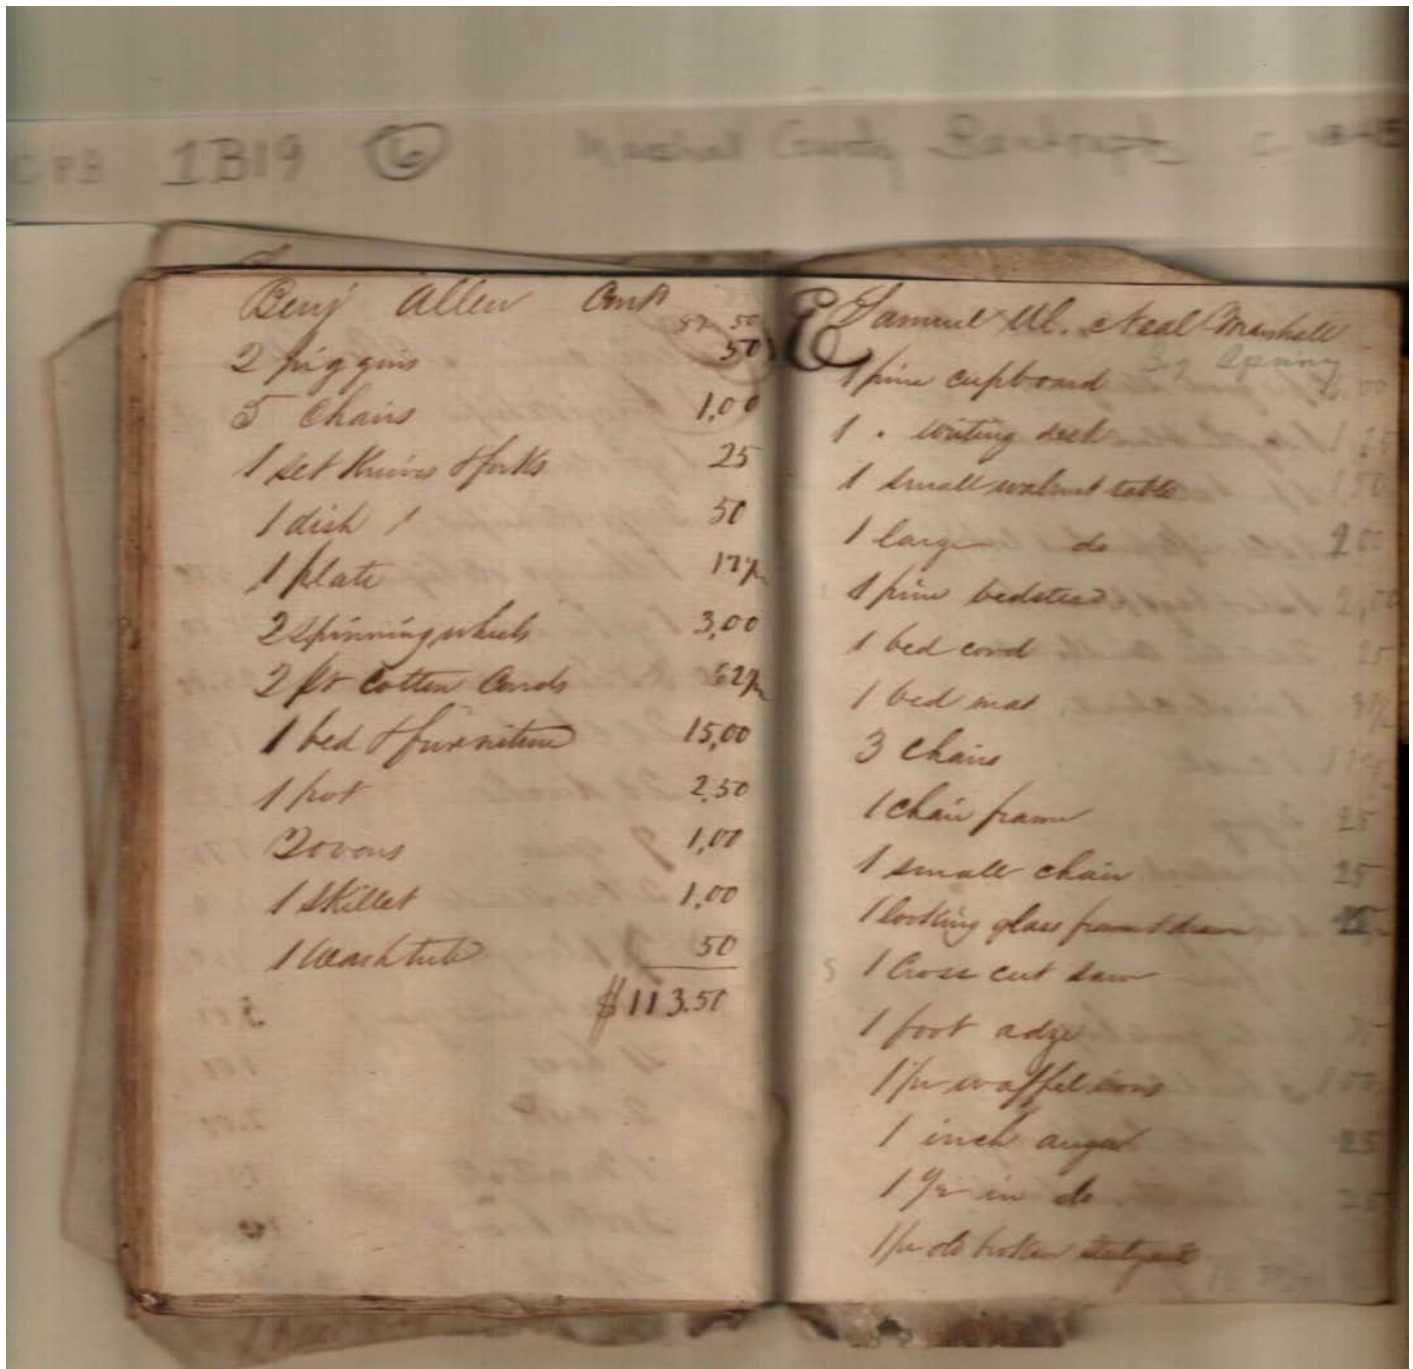 CPB 1B19 6 Marshal County Bankrupts
Benj Allen
87 50
2 piggins 50
5 Chairs 1,00
1 set Knives & forks 25
1 dish 50
1 plate
2 spinning wheels 3,00
2 pr Cotten Cards 62½
1 bed & furniture 15,00
1 pot 2,50
2 ovens 1,00
1 skillet 1,00
1 Washtub 50
$113.50
Samuel Neal Marshall
Big Spring
1 pine cupboard
1 . writing desk
1 small walnut table
1 large do
1 pine bedstead 2,00
1 bed cord 25
1 bed mat
3 Chairs
1 Chair frame 25
1 small chair 25
1 looking glass frame &
1 Cross cut saw
1 foot adze
1 pr waffel irons
1 inch auger 25
1 ½ in do 25
1 pr old broken